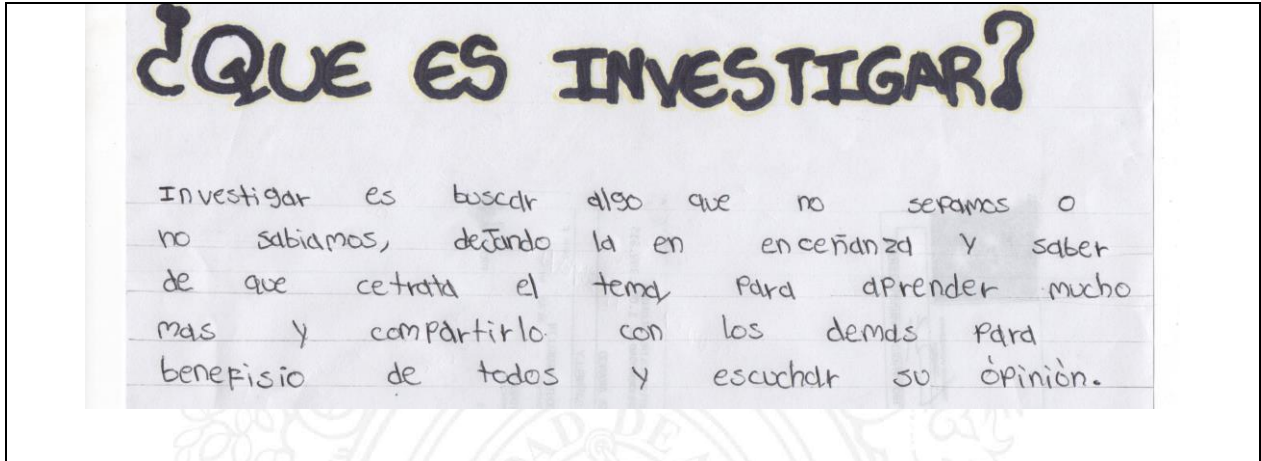 ¿QUE ES INVESTIGAR?
Investigar es buscar algo que no sepamos o
no sabiamos, dejando la en enceñanza y saber
de que cetrata el tema, para aprender mucho
mas y compartirlo con los demas para
benefisio de todos y escuchar su òpiniòn.